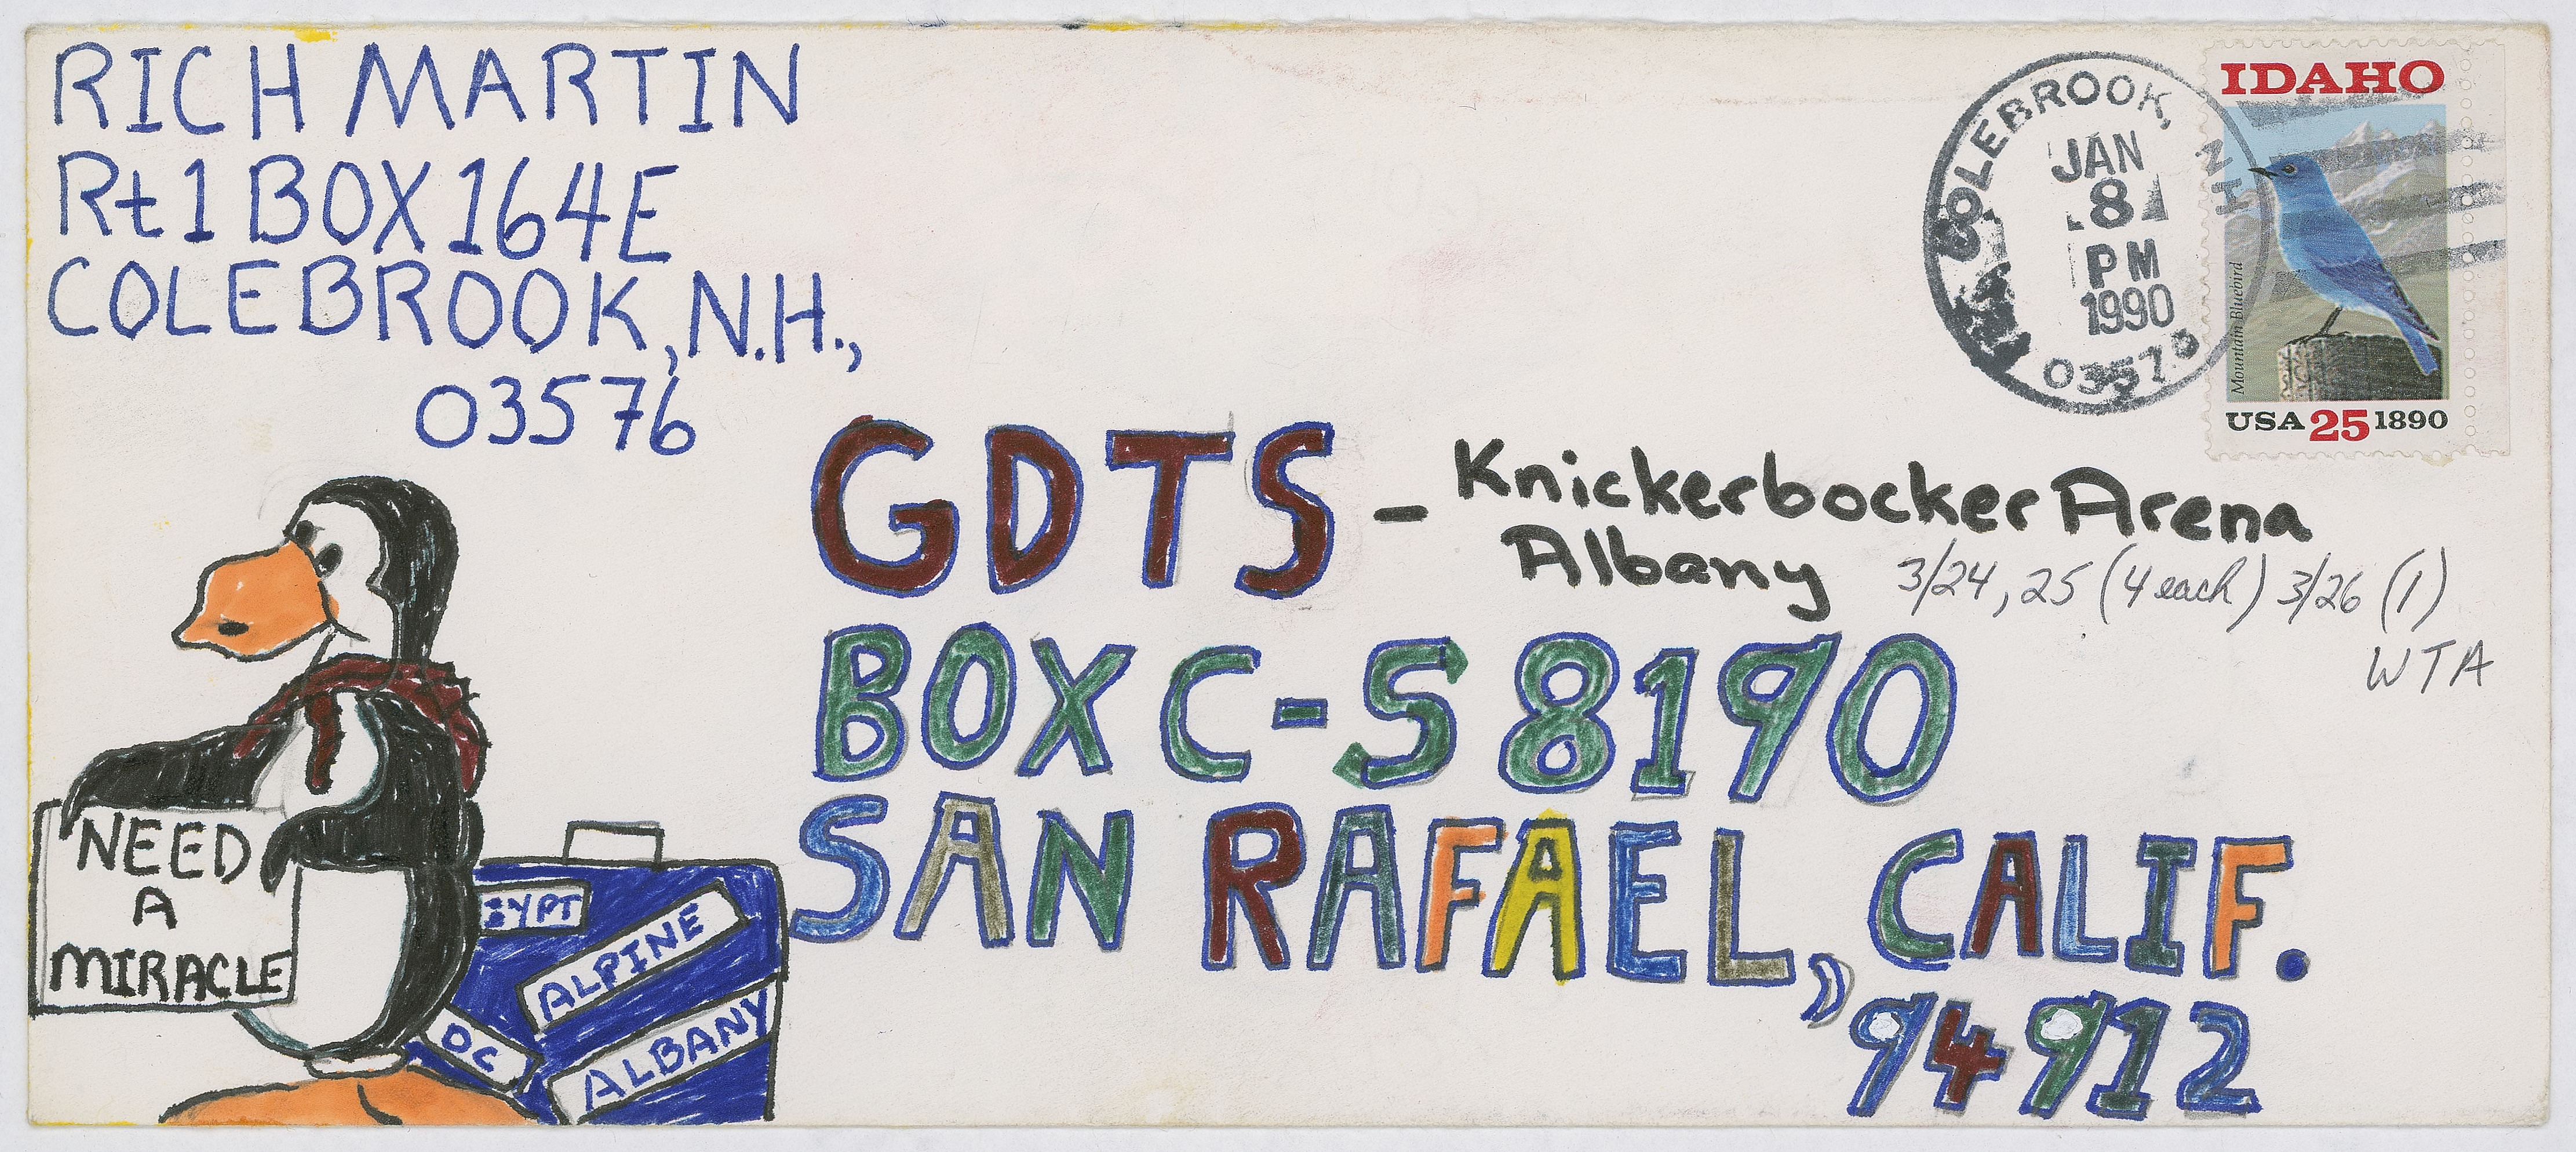 RICH MARTIN
Rt 1 BOX 164E
COLEBROOK, N.H.,
03576
COLEBROOK, NH
JAN
8
PM
1990
IDAHO
Mountain Bluebird
USA 25 1890
GDTS - Knickerbocker Arena
Albany 3/24, 25 (4 each) 3/26 (1)
WTA
BOX C-S 8190
SAN RAFAEL, CALIF.
94912
NEED
A
MIRACLE
ALPINE
DC
ALBANY